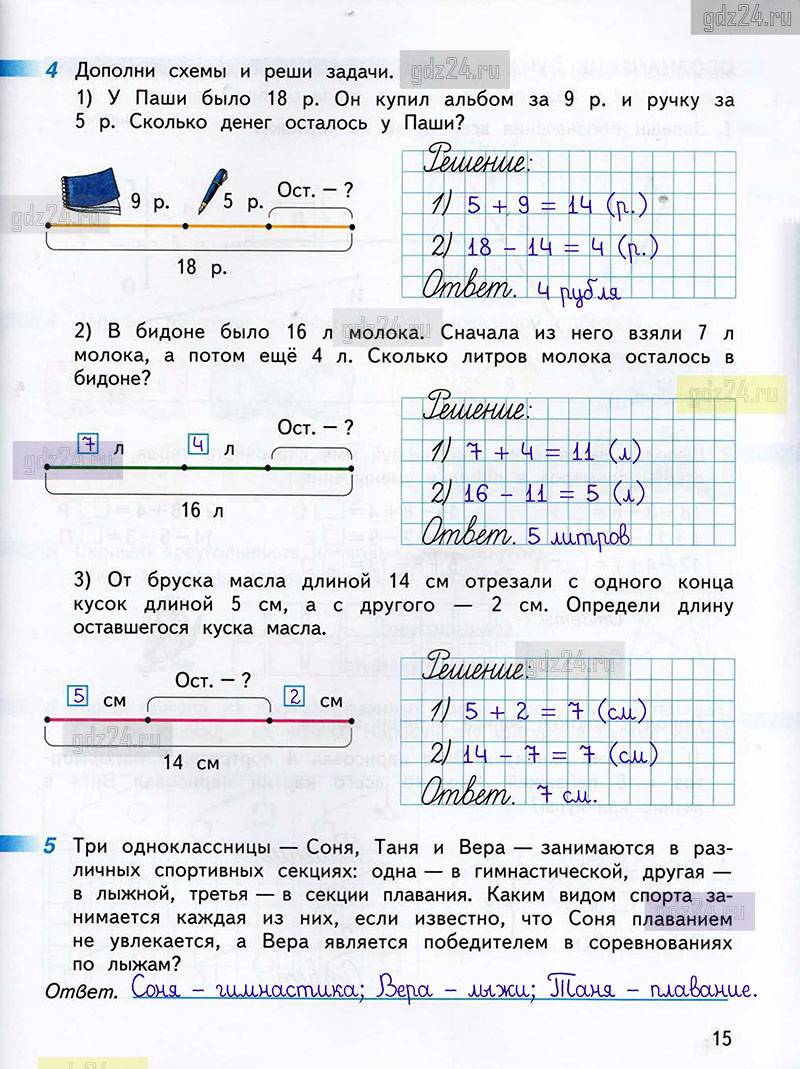 gdz24.ru
gdz24.ru
4 Дополни схемы и реши задачи.
1) У Паши было 18 р. Он купил альбом за 9 р. и ручку за
5 р. Сколько денег осталось у Паши?
9 р. 5 р. Ост. – ?
18 р.
gdz24.ru
Решение:
1) 5 + 9 = 14 (р.)
2) 18 – 14 = 4 (р.)
Ответ. 4 рубля
gdz24.ru
2) В бидоне было 16 л молока. Сначала из него взяли 7 л
молока, а потом ещё 4 л. Сколько литров молока осталось в
бидоне?
gdz24.ru
7 л 4 л Ост. – ?
16 л
gdz24.ru
Решение:
1) 7 + 4 = 11 (л)
2) 16 – 11 = 5 (л)
Ответ. 5 литров
3) От бруска масла длиной 14 см отрезали с одного конца
кусок длиной 5 см, а с другого — 2 см. Определи длину
оставшегося куска масла.
gdz24.ru
5 см Ост. – ? 2 см
14 см
gdz24.ru
Решение:
1) 5 + 2 = 7 (см)
2) 14 – 7 = 7 (см)
Ответ. 7 см.
5 Три одноклассницы — Соня, Таня и Вера — занимаются в раз-
личных спортивных секциях: одна — в гимнастической, другая —
в лыжной, третья — в секции плавания. Каким видом спорта за-
нимается каждая из них, если известно, что Соня плаванием
не увлекается, а Вера является победителем в соревнованиях
по лыжам?
gdz24.ru
Ответ. Соня – гимнастика; Вера – лыжи; Таня – плавание.
15